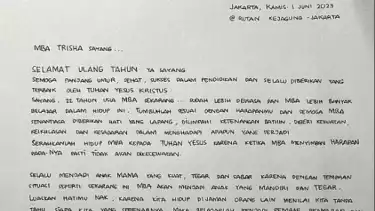 JAKARTA, KAMIS 1 JUNI 2023
@ RUTAN KEJAGUNG - JAKARTA
MBA TRISHA SAYANG...
SELAMAT ULANG TAHUN YA SAYANG
SEMOGA PANJANG UMUR, SEHAT, SUKSES DALAM PENDIDIKAN DAN SELALU DIBERIKAN YANG
TERBAIK OLEH TUHAN YESUS KRISTUS
SAYANG.. 22 TAHUN USIA MBA SEKARANG... SUDAH LEBIH DEWASA DAN MBA LEBIH BANYAK
BELAJAR DALAM HIDUP INI. TUMBUHLAH SESUAI DENGAN HARAPANMU DAN SEMOGA MBA
SENANTIASA DIBERIKAN HATI YANG LAPANG, DILIMPAHI KETENANGAN BATHIN, DIBERI KEKUATAN,
KEIKHLASAN DAN KESABARAN DALAM MENGHADAPI APAPUN YANG TERJADI
SERAHKANLAH HIDUP MBA KEPADA TUHAN YESUS KARENA KETIKA MBA MENYIMPAN HARAPAN
PADA-NYA PASTI TIDAK AKAN DIKECEWAKAN.
SELALU MENJADI ANAK MAMA YANG KUAT, TEGAR DAN SABAR KARENA DENGAN TEMPAAN
SITUASI SEPERTI SEKARANG INI MBA AKAN MENJADI ANAK YANG MANDIRI DAN TEGAR.
LUASKAN HATIMU NAK, KARENA HIDUP DIJAMAN ORANG LAIN MENILAI KITA TANPA